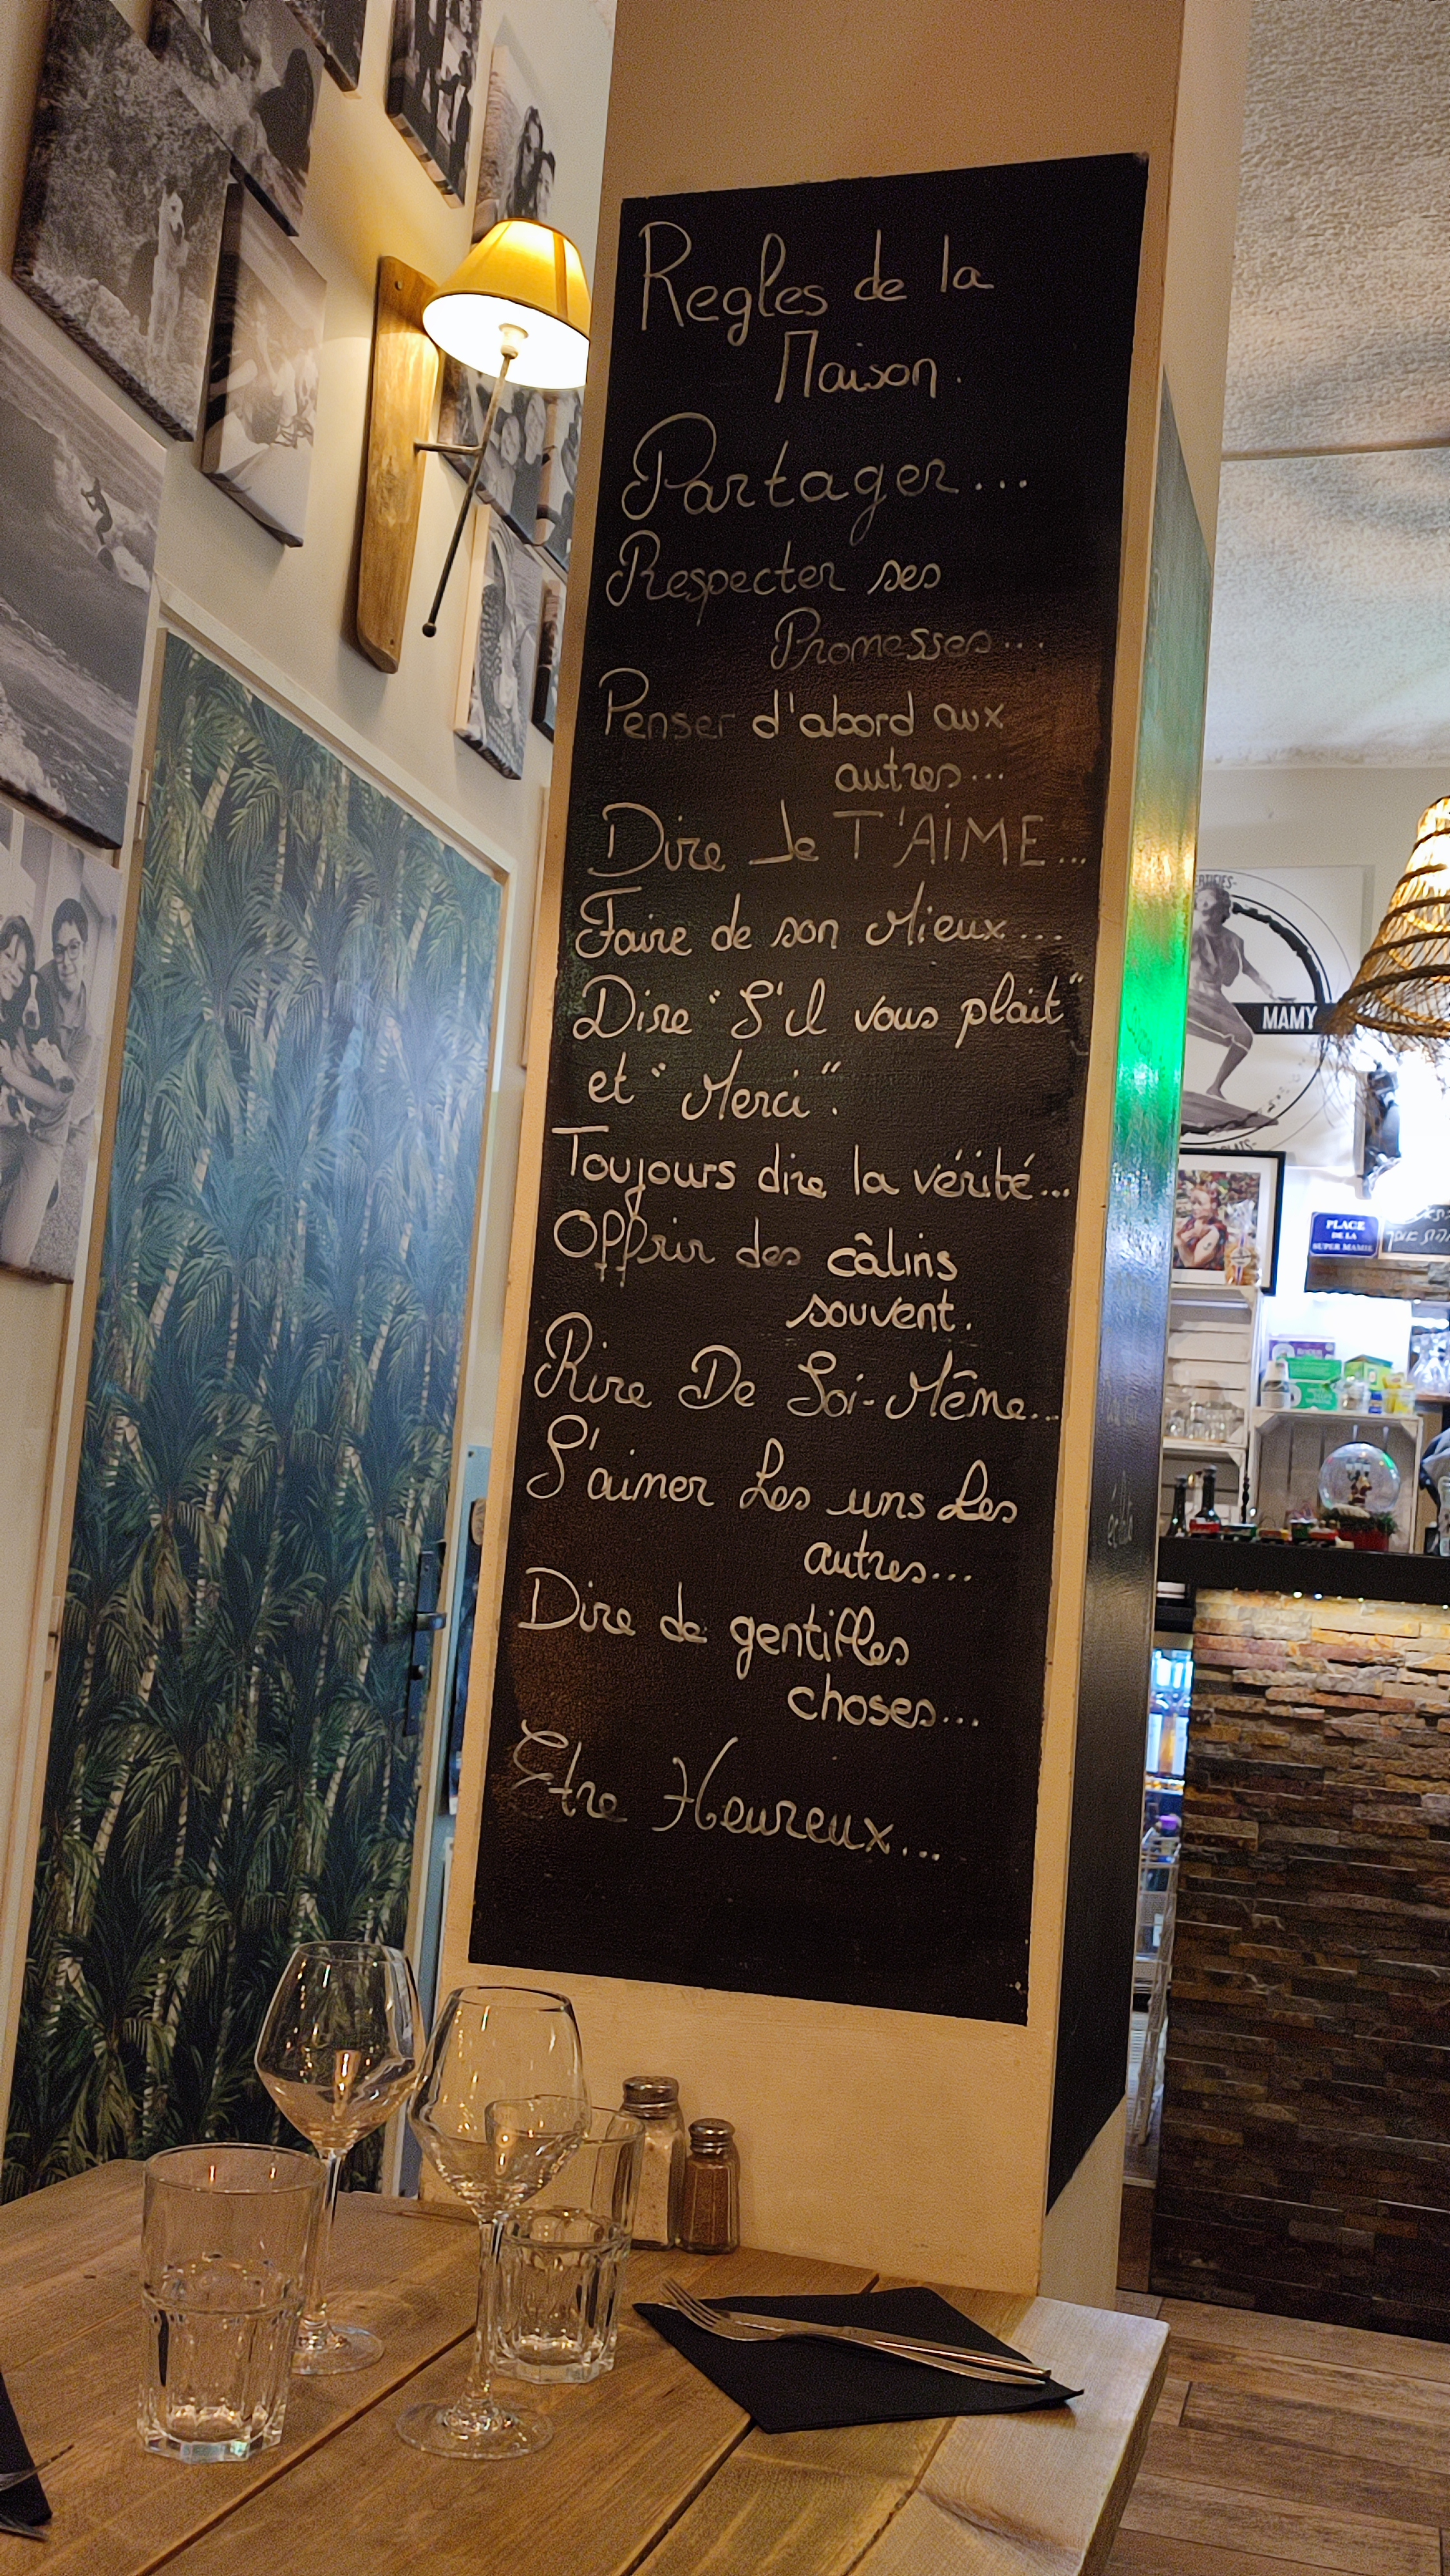 Regles de la
Maison.
Partager...
Respecter ses
Promesses...
Penser d'abord aux
autres...
Dire Je T'AIME...
Faire de son Mieux...
Dire "S'il vous plait"
et "Merci".
Toujours dire la vérité...
Offrir des câlins
souvent.
Rire De Soi-Même...
S'aimer Les uns Les
autres...
Dire de gentilles
choses...
Etre Heureux...
MAMY
PLACE
DE LA
SUPER MAMIE